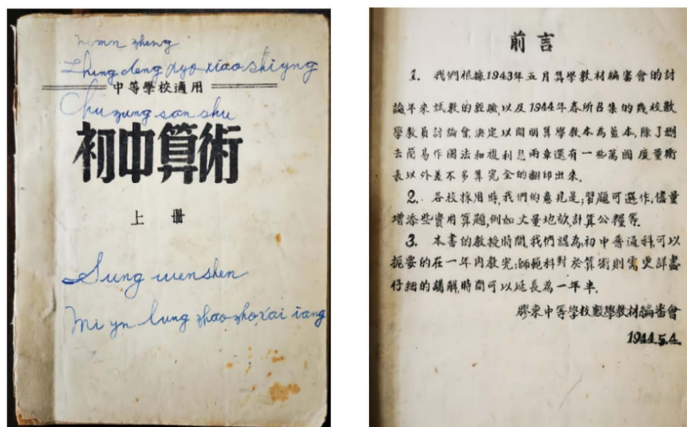 zheng
zhung deng xyo xiao shi yng
中等學校適用
Chu zung san shu
初中算術
上冊
Sung wen shen
前言
1. 我們根據1943年五月算學教材編審會的討
論年來試教的經驗,以及1944年春所召集的幾校數
學教員討論會,決定以開明算學教本為藍本,除了刪
去簡易作圖法和複利息兩章還有一些萬國度量衡
表以外差不多算完全的翻印出來。
2. 各校採用時,我們的意見是:習題可選作,儘量
增添些實用算題,例如丈量地畝,計算公糧等。
3. 本書的教授時間,我們認為,初中普通科可以
扼要的在一年內教完;師範科對於算術則需更詳盡
仔細的講解,時間可以延長為一年半。
膠東中等學校數學教材編審會
1944.5.4.